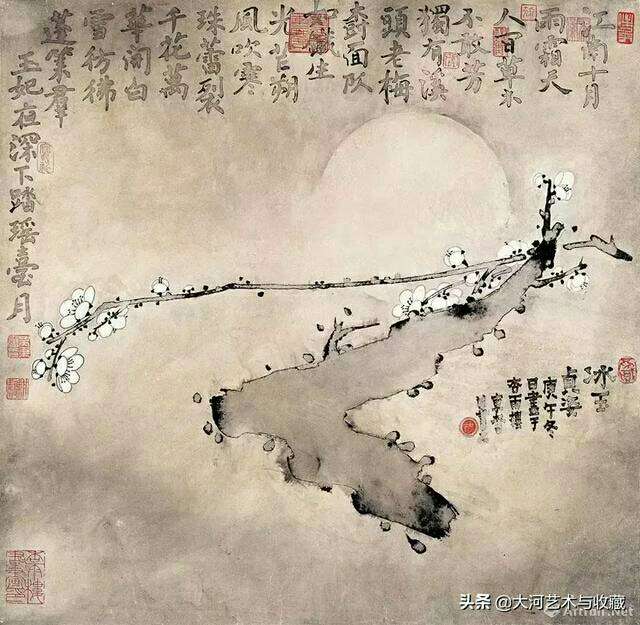 江南十月
雨霜天
人百草木
不敢芳
獨有溪
頭老梅
樹面
鐵生
光芒朔
風吹寒
珠蕾裂
千花萬
華開白
雪彷彿
蓬萊羣
玉妃夜深下踏瑤臺月
冰玉
貞姿
庚午冬
日畫于
杏雨樓
头条 @大河艺术与收藏
Artron.Net